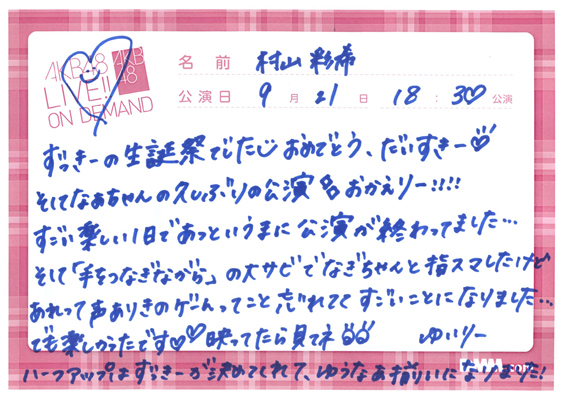 AKB48
LIVE!!
ON DEMAND
AKB
48
名前 村山彩希
公演日 9月21日 18:30公演
ずっきーの生誕祭でした おめでとう、だいすきー♡
そしてなぁちゃんの久しぶりの公演 おかえりー!!!!
すごい楽しい1日であっというまに公演が終わってました…
そして「手をつなぎながら」の大サビでなぎちゃんと指スマしたけど
あれって声ありきのゲームってこと忘れててすごいことになりました…
でも楽しかったです♡♡ 映ってたら見てネ ゆいりー
ハーフアップはずっきーが決めてくれて、ゆうなぁ揃いになりました!